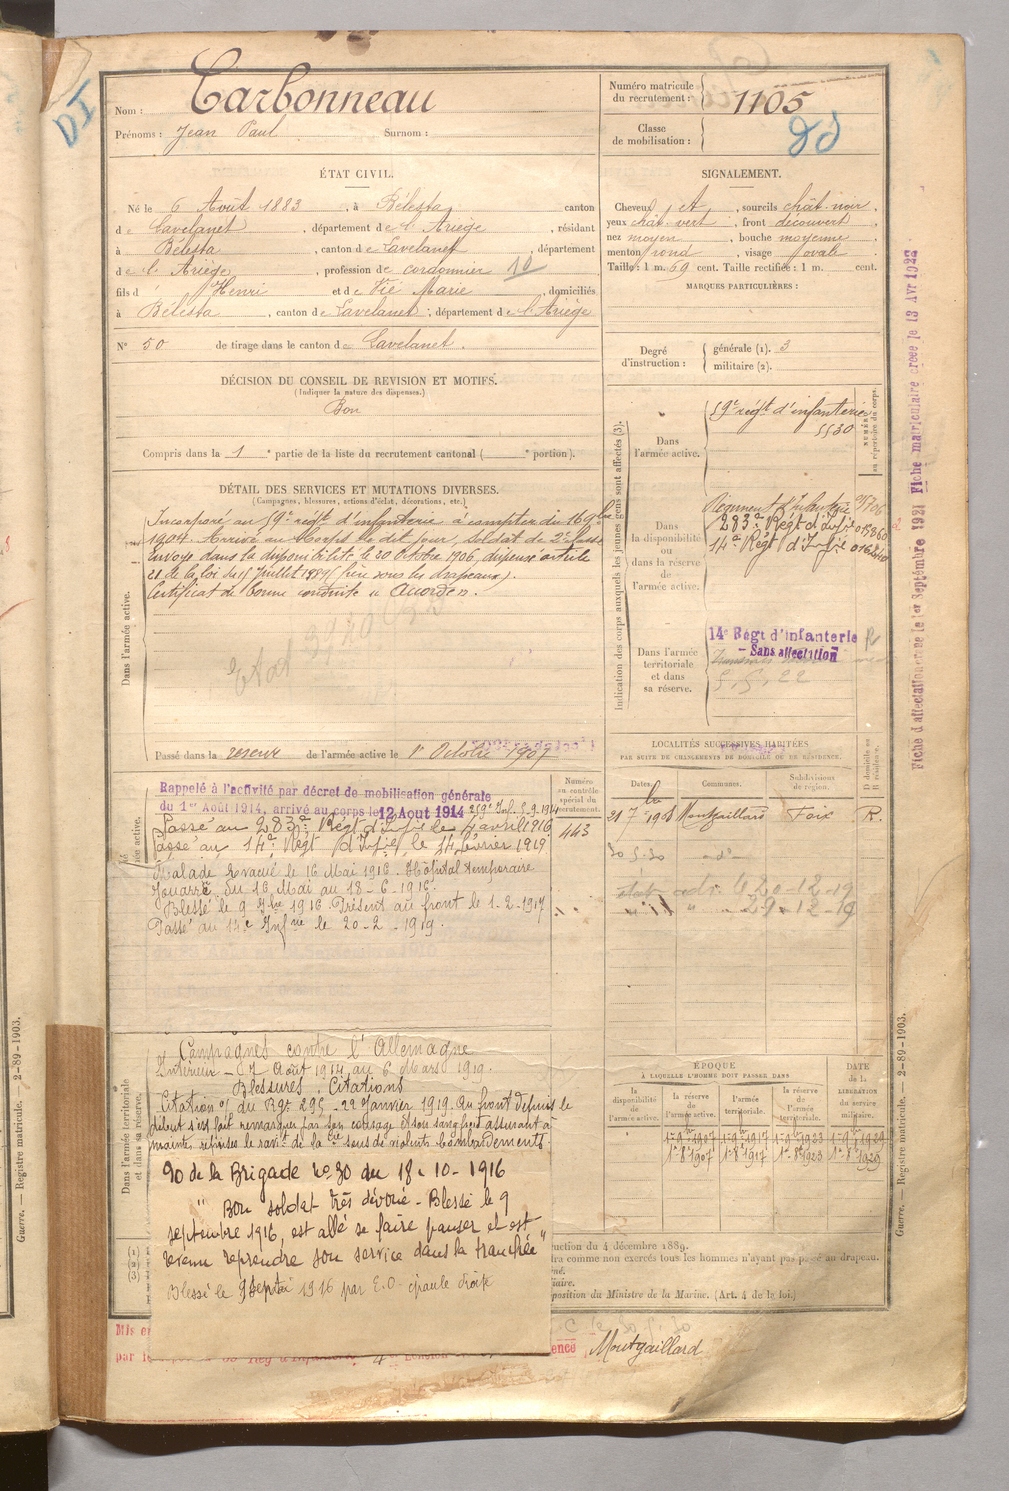 Nom : Carbonneau
Prénoms : Jean Paul Surnom :
Numéro matricule
du recrutement : 1105
Classe
de mobilisation :
ÉTAT CIVIL.
Né le 6 Août 1883, à Bélesta, canton
de Lavelanet, département de l'Ariège, résidant
à Bélesta, canton de Lavelanet, département
de l'Ariège, profession de cordonnier 10
fils d' Henri et de Vié Marie, domiciliés
à Bélesta, canton de Lavelanet, département de l'Ariège
N° 50 de tirage dans le canton de Lavelanet.
SIGNALEMENT.
Cheveux et, sourcils chât-noir,
yeux chât-vert, front découvert
nez moyen, bouche moyenne
menton rond, visage ovale
Taille : 1 m. 69 cent. Taille rectifiée : 1 m. cent.
MARQUES PARTICULIÈRES :
Degré
d'instruction :
générale (1). 3
militaire (2).
DÉCISION DU CONSEIL DE REVISION ET MOTIFS.
(Indiquer la nature des dispenses.)
Bon
Compris dans la 1e partie de la liste du recrutement cantonal ( e portion).
DÉTAIL DES SERVICES ET MUTATIONS DIVERSES.
(Campagnes, blessures, actions d'éclat, décorations, etc.)
Dans l'armée active.
Incorporé au 59e régt d'infanterie à compter du 16 9bre
1904. Arrivé au Corps le dit jour, soldat de 2e classe
Envoyé dans la disponibilité le 20 Octobre 1906, dispensé article
21 de la loi du 15 Juillet 1889 (frère sous les drapeaux).
Certificat de bonne conduite "Accordé".
Passé dans la réserve de l'armée active le 1er Octobre 1907
Indication des corps auxquels les jeunes gens sont affectés (3).
NUMÉRO
au répertoire du corps.
Dans
l'armée active.
59e régt d'infanterie
5530
Dans
la disponibilité
ou
dans la réserve
de
l'armée active.
Régiment d'Infanterie
283e Régt d'Infie 015360
14e Régt d'Infie
Dans l'armée
territoriale
et dans
sa réserve.
14e Régt d'infanterie
- Sans affectation
LOCALITÉS SUCCESSIVES HABITÉES
PAR SUITE DE CHANGEMENTS DE DOMICILE OU DE RÉSIDENCE.
Dates. Communes. Subdivisions
de région.
D domicile ou
R résidence.
21 7bre 1908 Montgaillard Foix R.
20-12-19
29-12-19
Numéro
au contrôle
spécial du
recrutement.
443
Rappelé à l'activité par décret de mobilisation générale
du 1er Août 1914, arrivé au corps le 12 Aout 1914
Passé au 283e Régt d'Infie le 4 avril 1916
Passé au 14e Régt d'Infie le 14 février 1919
Malade Evacué le 16 Mai 1916. Hôpital temporaire
Jouarre du 16 Mai au 18-6-1916.
Blessé le 9 7bre 1916 Présent au front le 1-2-1917
Passé au 14e Infrie le 20-2-1919.
Dans l'armée territoriale
et dans sa réserve.
Campagnes contre l'Allemagne
Intérieur - 7 Août 1914 au 6 Mars 1919.
Blessures, Citations
Citation o/ du Rgt 295 - 22 Janvier 1919. Au front depuis le
début s'est fait remarquer par son courage et son sang froid assurant à
maintes reprises le ravit de la Cie sous de violents bombardements.
90 de la Brigade No 30 du 18-10-1916
"Bon soldat très dévoué - Blessé le 9
septembre 1916, est allé se faire panser et est
revenu reprendre son service dans la tranchée"
Blessé le 9 septbre 1916 par E.O - épaule droite
ÉPOQUE
À LAQUELLE L'HOMME DOIT PASSER DANS
la
disponibilité
de
l'armée active.
la réserve
de
l'armée active.
l'armée
territoriale.
la réserve
de
l'armée
territoriale.
DATE
de la
LIBÉRATION
du service
militaire.
1er 9bre 1907 1er 9bre 1917 1er 9bre 1923 1er 9bre 1929
1er 8bre 1907 1er 8bre 1917 1er 8bre 1923 1er 8bre 1929
(1)
(2)
(3)
uction du 4 décembre 1889.
dra comme non exercés tous les hommes n'ayant pas passé au drapeau.
position du Ministre de la Marine. (Art. 4 de la loi.)
Montgaillard
Guerre. — Registre matricule. — 2-89-1903.
Guerre. — Registre matricule. — 2-89-1903.
Fiche d'affectation créée le 1er Septembre 1921 Fiche matriculaire créée le 13 Avr 1922